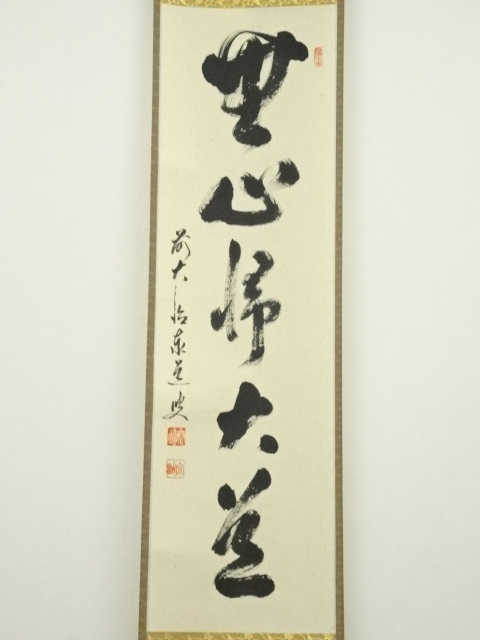 無心帰大道
前大徳泰道叟